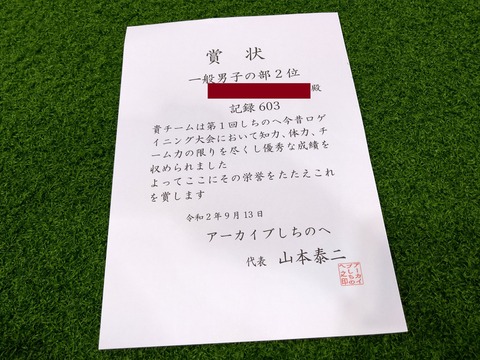 賞 状
一般男子の部2位
殿
記録603
貴チームは第1回しちのへ今昔ロゲ
イニング大会において知力、体力、チ
ーム力の限りを尽くし優秀な成績を
収められました
よってここにその栄誉をたたえこれ
を賞します
令和2年9月13日
アーカイブしちのへ
代表 山本泰二
アーカイ
ブしちの
へ之印